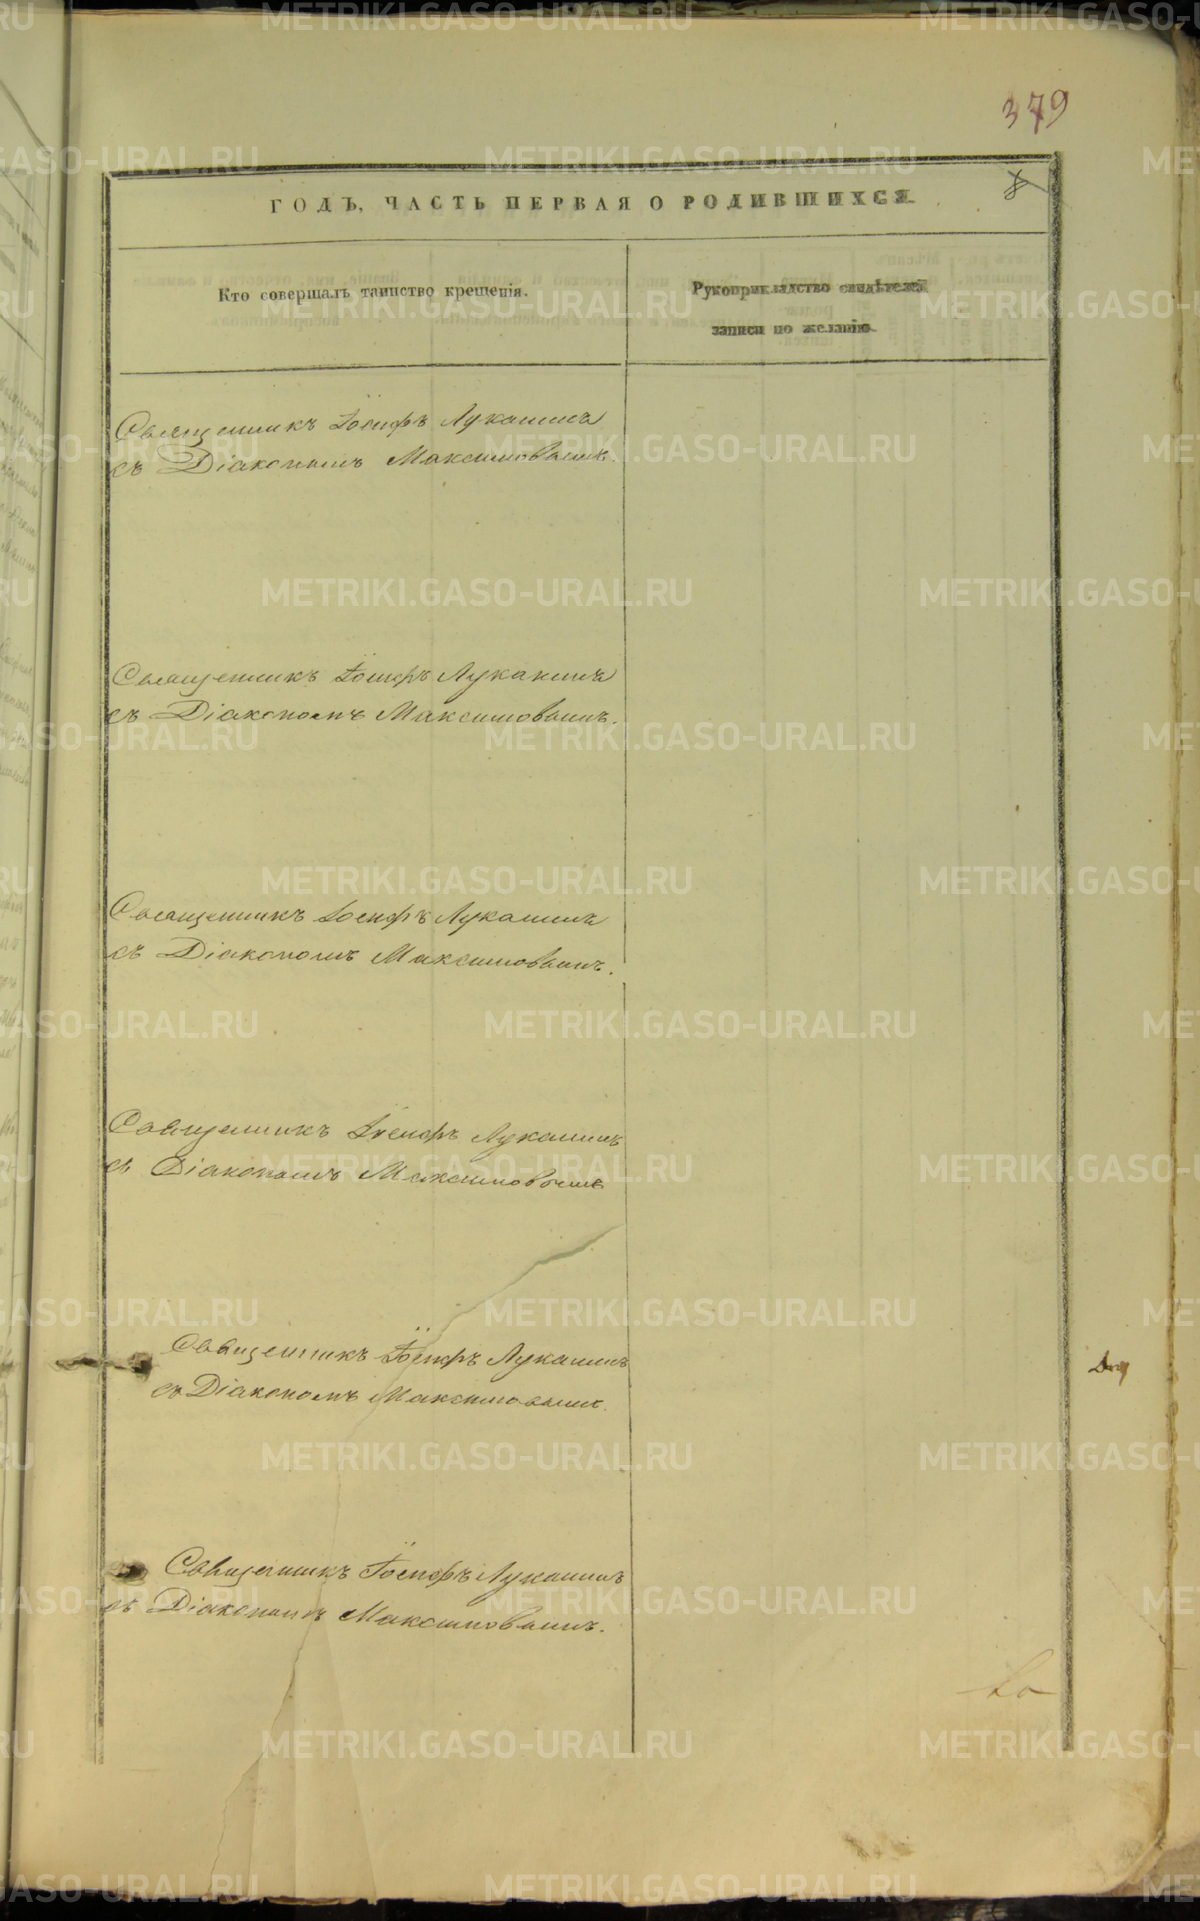 379
8
ГОДЪ, ЧАСТЬ ПЕРВАЯ О РОДИВШИХСЯ
Кто совершалъ таинство крещенія.
Рукоприкладство свидѣтелей
записи по желанію
Священникъ Іосифъ Луканинъ
съ Діакономъ Максимовымъ.
Священникъ Іосифъ Луканинъ
съ Діакономъ Максимовымъ.
Священникъ Іосифъ Луканинъ
съ Діакономъ Максимовымъ.
Священникъ Іосифъ Луканинъ
съ Діакономъ Максимовымъ
Священникъ Іосифъ Луканинъ
съ Діакономъ Максимовымъ.
Священникъ Іосифъ Луканинъ
съ Діакономъ Максимовымъ.
METRIKI.GASO-URAL.RU